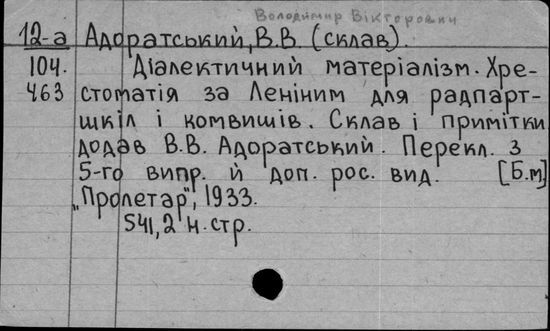 Володимир Вікторович
12-а Адоратський, В.В. (склав).
104. Діалектичний матеріалізм. Хре-
463 стоматія за Леніним для радпарт-
шкіл і комвишів. Склав і примітки
додав В.В. Адоратський. Перекл. з
5-го випр. й доп. рос. вид. [Б.м]
„Пролетар", 1933.
541, 2 н. стр.